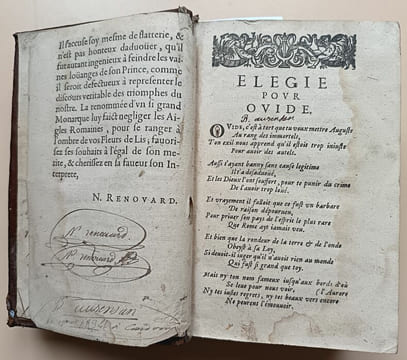 Il s'accuse soy mesme de flatterie, &
n'est pas honteux d'aduoüer, qu'il
fut autant ingenieux à feindre les vai-
nes loüanges de son Prince, comme
il seroit defectueux à representer le
discours veritable des triomphes du
nostre. La renommée d'vn si grand
Monarque luy faict negliger les Ai-
gles Romaines, pour se ranger à
l'ombre de vos Fleurs de Lis, fauori-
sez-les
souhaits à l'égal de son me-
rite, & cherisez en sa faueur son In-
terprete,
N. RENOVARD.
N. renouard.
N renouard
ELEGIE
POVR
OVIDE.
OVIDE, c'est à tort que tu veux mettre Auguste
Au rang des immortels,
Ton exil nous apprend qu'il estoit trop iniuste
Pour auoir des autels.
Aussi t'ayant banny sans cause legitime
Il t'a desaduoüé,
Et les Dieux l'ont souffert, pour te punir du crime
De l'auoir trop loüé.
Et vrayement il falloit que ce fust vn barbare
De raison dépourueu,
Pour priuer son pays de l'esprit le plus rare
Que Rome ayt iamais veu.
Et bien que la rondeur de la terre & de l'onde
Obeyst à sa Loy,
Si deuoit-il iuger qu'il n'auoit rien au monde
Qui fust si grand que toy.
Mais ny ton nom fameux iusqu'aux bords d'où
Se leue pour nous voir, (l'Aurore
Ny tes iustes regrets, ny tes beaux vers encore
Ne peurent l'émouuoir.